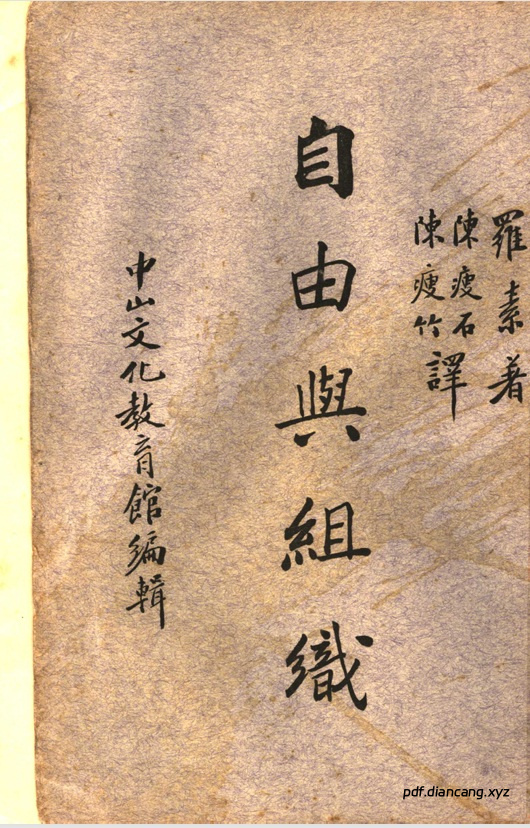 羅素著
陳瘦石
陳瘦竹
譯
自由與組織
中山文化教育館編輯
pdf.diancang.xyz